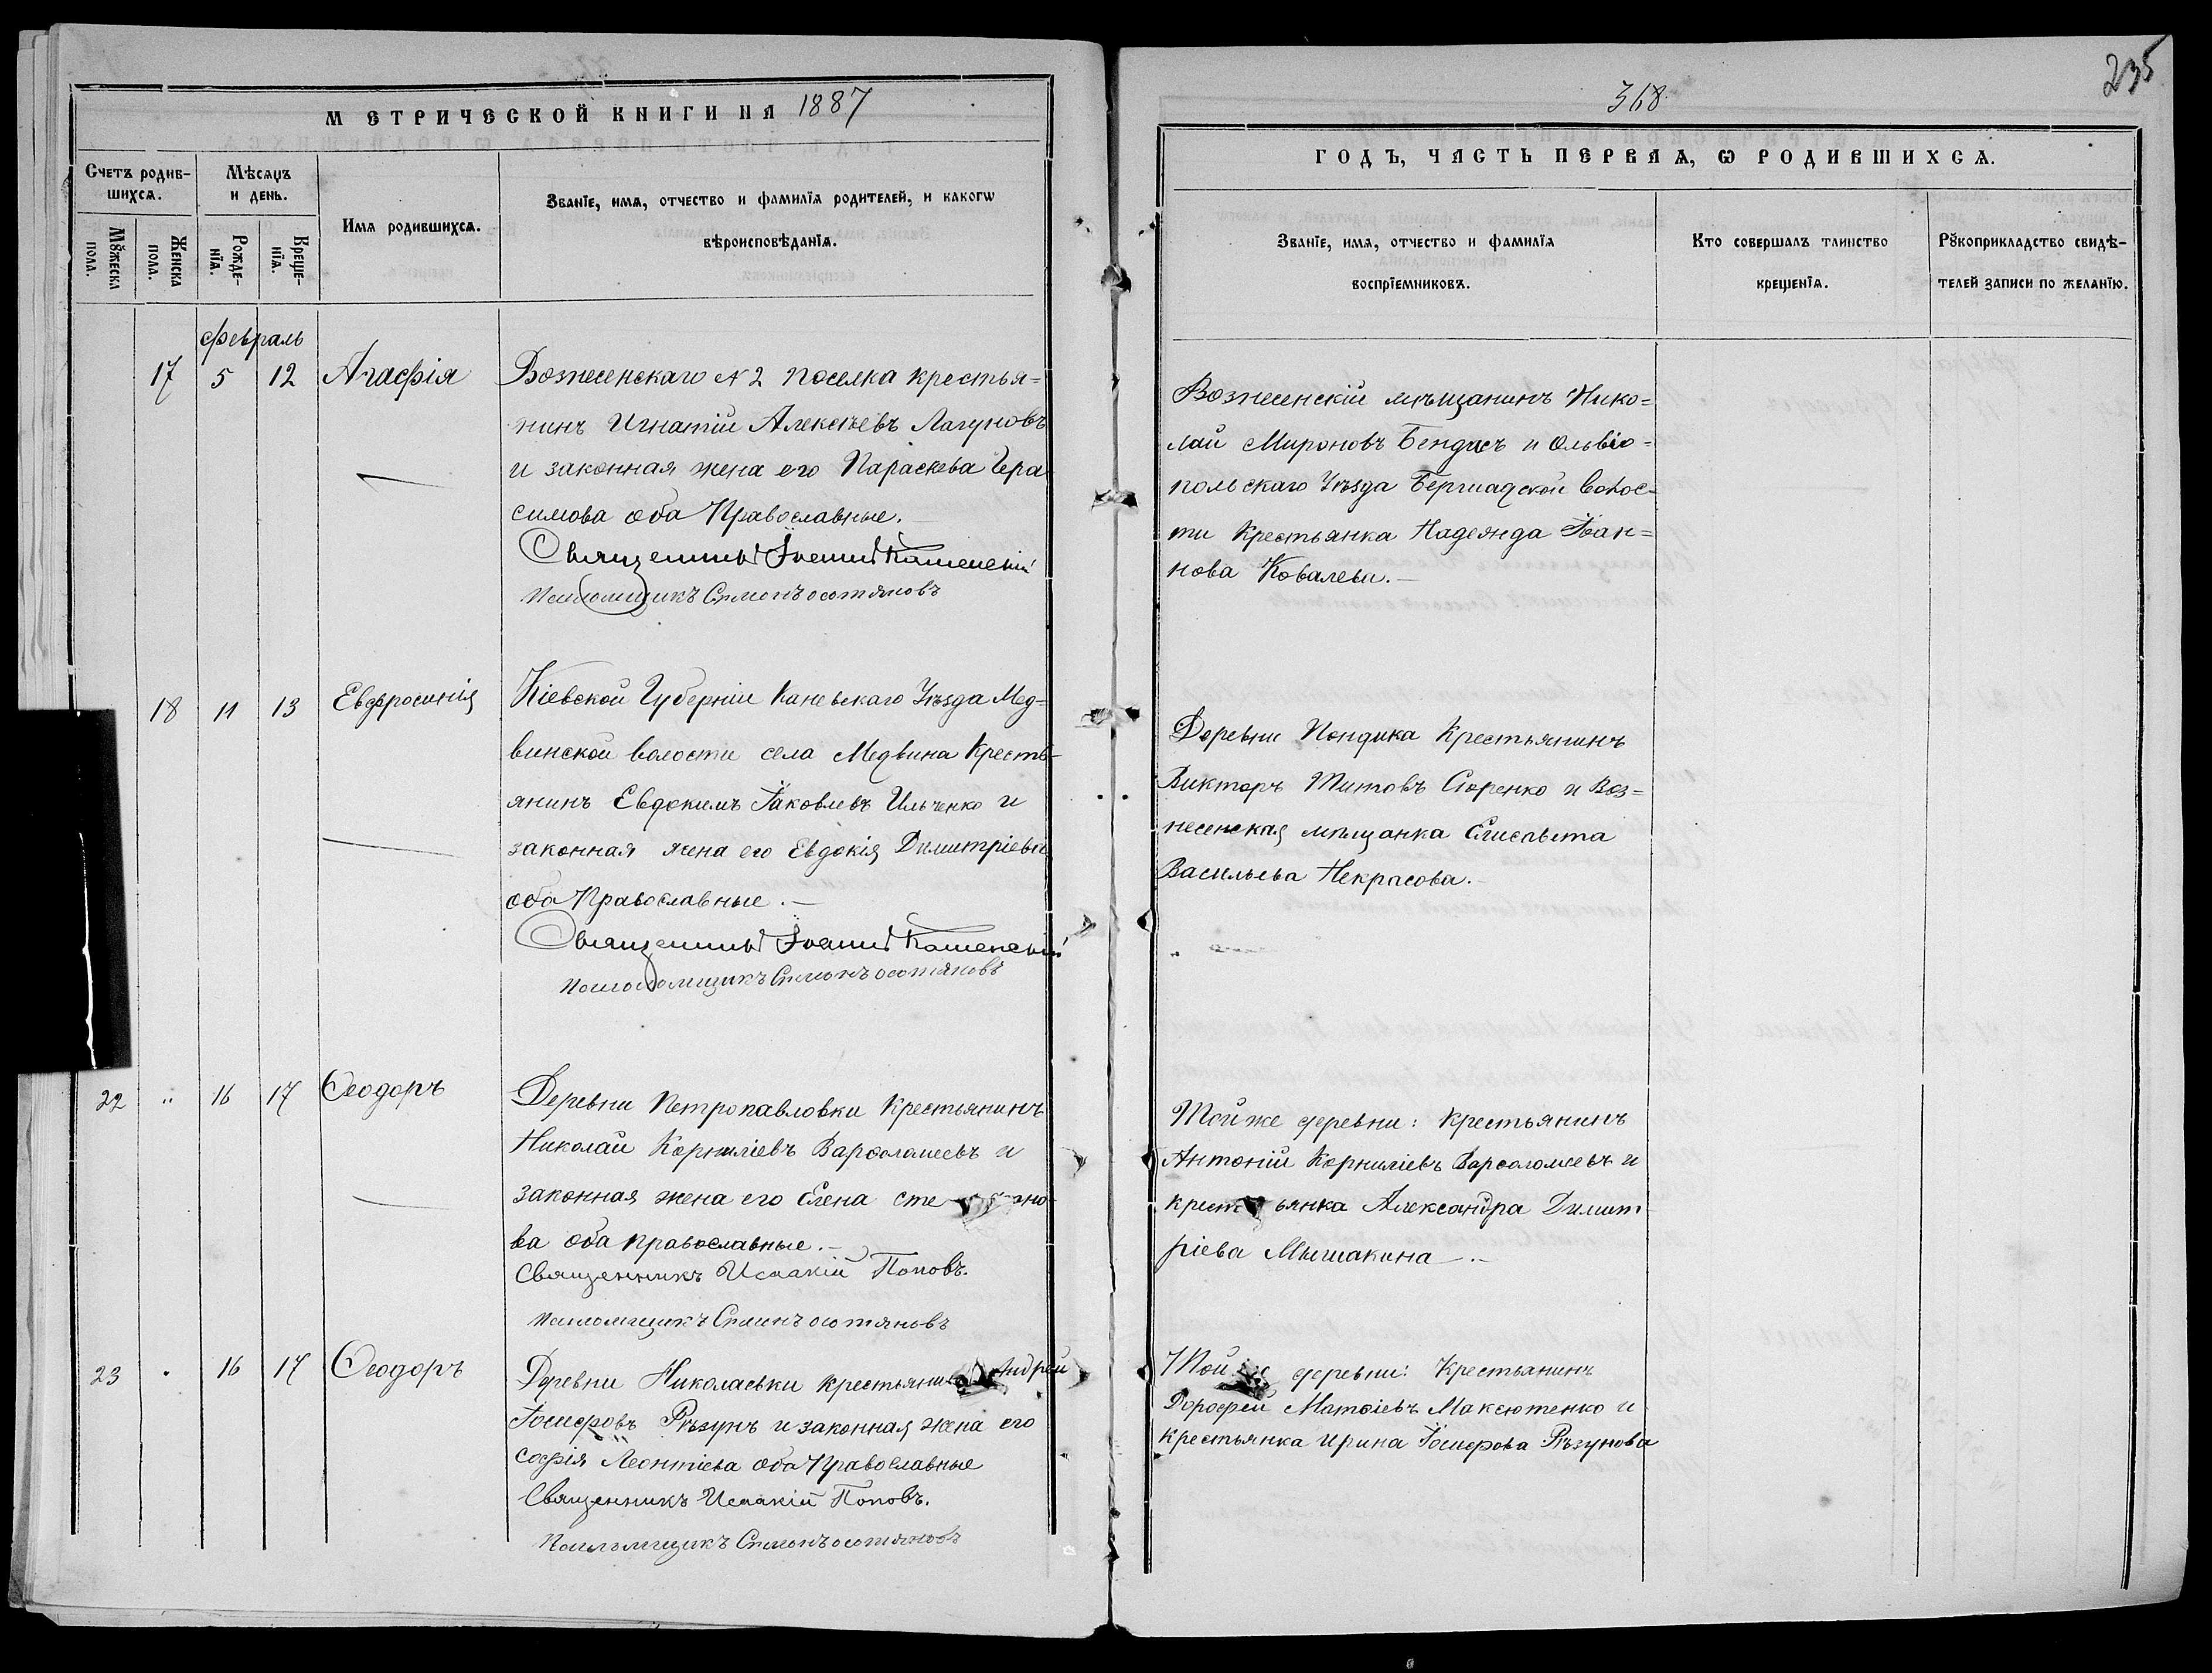 МЕТРИЧЕСКОЙ КНИГИ НА 1887
Счетъ родив-
шихсѧ.
Мѣсѧцъ
и день.
Имѧ родившихсѧ.
Званїе, имѧ, отчество и фамилїѧ родителей, и какогѡ
вѣроисповѣданїѧ.
Мꙋжеска
пола.
Женска
пола.
Рожде-
нїѧ.
Креще-
нїѧ.
Февраль
17 5 12 Агафія
Вознесенскаго N 2 поселка крестья=
нинъ Игнатій Алексѣевъ Лагуновъ
и законная жена его Параскева Гера
симова оба Православные.
Священникъ Іоаннъ Каменскій
Псаломщикъ Симонъ
18 11 13 Евфросинія
Кіевской Губерніи Каневскаго Уѣзда Мед=
винской волости села Медвина Кресть-
янинъ Евдокимъ Іаковлевъ Ильченко и
законная жена его Евдокія Димитріева
оба Православные.
Священникъ Іоаннъ Каменскій
Псаломщикъ Симонъ
22 " 16 17 Ѳеодоръ
Деревни Петропавловки Крестьянинъ
Николай Корниліевъ Варѳоломеевъ и
законная жена его Елена Сте но
ва оба православные.
Священникъ Исаакій Поповъ.
Псаломщикъ Симонъ
23 " 16 17 Ѳеодоръ
Деревни Николаевки крестьянинъ Андрей
Іосифовъ Рѣзунъ и законная жена его
Софія Леонтіева оба Православные
Священникъ Исаакій Поповъ.
Псаломщикъ Симонъ
235
368
ГОДЪ, ЧАСТЬ ПЕРВАЯ, Ѡ РОДИВШИХСѦ.
Званїе, имѧ, отчество и фамилїѧ
воспрїемниковъ.
Кто совершалъ таинство
крещенїѧ.
Рꙋкоприкладство свидѣ-
телей записи по желанїю.
Вознесенскій мѣщанинъ Нико=
лай Мироновъ и Ольвіо=
польскаго Уѣзда Бершадской волос=
ти Крестьянка Надежда Іоан=
нова Ковалева.
Деревни Крестьянинъ
Викторъ Титовъ и Воз=
несенская мѣщанка Елисавета
Васильева Некрасова.
Той же деревни: Крестьянинъ
Антоній Корниліевъ Варѳоломеевъ и
крестьянка Александра Димит
ріева Мышакина
Той же деревни: Крестьянинъ
Дорофей Матѳіевъ Максютенко и
крестьянка Ирина Іосифова Рѣзунова